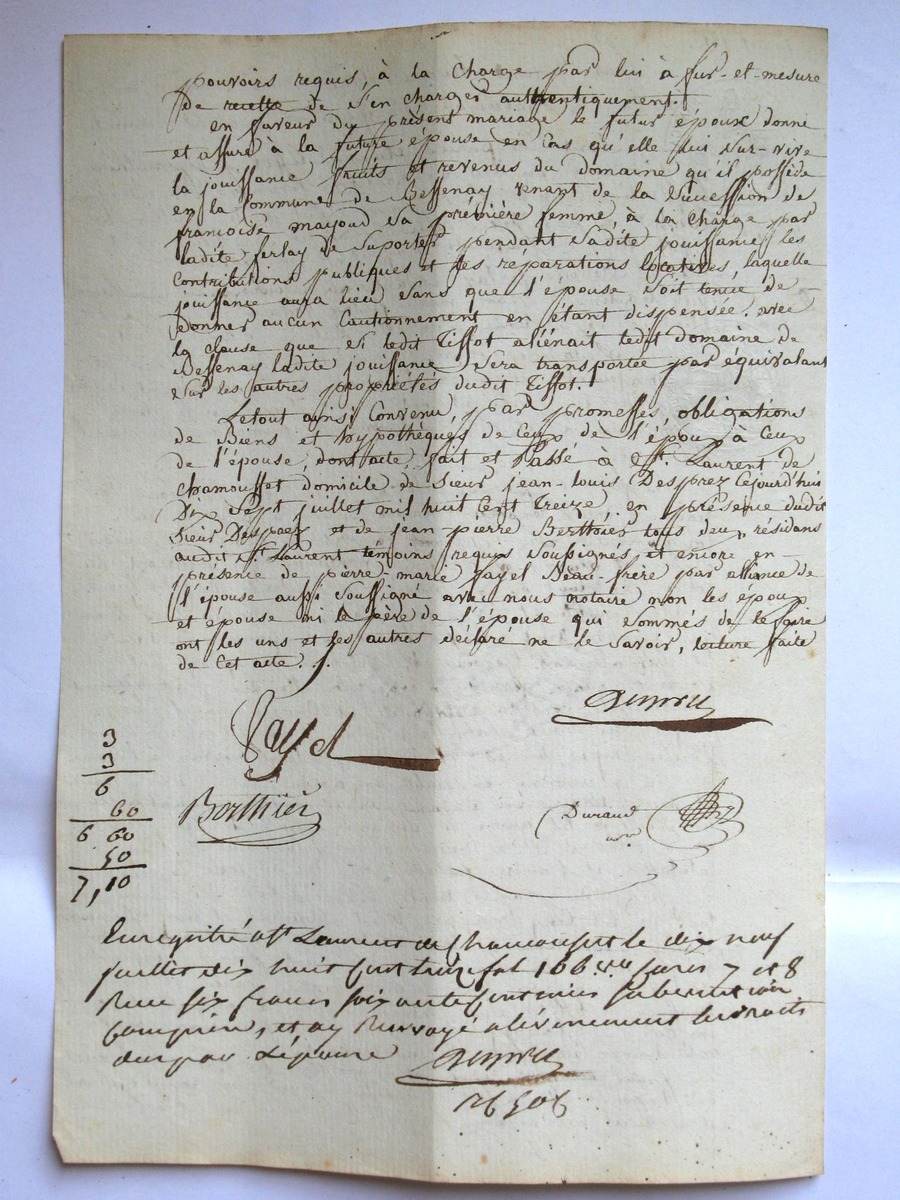 pouvoirs requis, à la charge par lui à fur-et-mesure
de recette de s'en charger authentiquement.
en faveur du présent mariage le futur époux donne
et assure à la future épouse en cas qu'elle lui sur-vive
la jouissance fruits et revenus du domaine qu'il possède
en la commune de Bessenay venant de la succession de
françoise mayoud sa première femme, à la charge par
ladite ferlay de suporter pendant sadite jouissance les
contributions publiques et les réparations locatives, laquelle
jouissance aura lieu sans que l'épouse soit tenue de -
donner aucun cautionnement en étant dispensée. avec
la clause que si ledit Tissot aliénait ledit domaine de
Bessenay ladite jouissance sera transportée par équivalant
sur les autres propriétés dudit Tissot.
Letout ainsi convenu, par promesses, obligations
de Biens et hypothèques de ceux de l'époux à ceux
de l'épouse, dont acte, fait et Passé à St. Laurent de
chamousset domicile de sieur jean-louis Desprez cejourd'hui
Dix sept juillet mil huit cent treize, en présence dudit
sieur Desprez et de jean-pierre Berthier tous deux résidans
audit St. Laurent témoins requis soussignés, et encore en -
présence de pierre-marie fayel Beau-frère par alliance de
l'épouse aussi soussigné avec nous notaire non les époux
et épouse ni le père de l'épouse qui sommés de le faire
ont les uns et les autres déclaré ne le savoir, lecture faite
de cet acte. /.
Desprez
Fayel
3
3
6
60
6 60
50
7,10
Berthier
Durand
nre
Enregistré à St Laurent de Chamousset le dix neuf
juillet dix huit cent treize fol 166 cases 7 et 8
Reçu six francs soixante centimes subvention
comprise, et ay Renvoyé a lévènement les droits
dus par Lépouse
Desprez